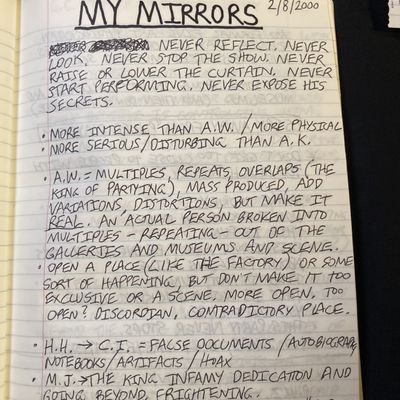 MY MIRRORS 2/8/2000
NEVER REFLECT. NEVER
LOOK. NEVER STOP THE SHOW. NEVER
RAISE OR LOWER THE CURTAIN. NEVER
START PERFORMING. NEVER EXPOSE HIS
SECRETS.
• MORE INTENSE THAN A.W. / MORE PHYSICAL
• MORE SERIOUS/DISTURBING THAN A.K.
• A.W. = MULTIPLES, REPEATS, OVERLAPS (THE
KING OF PARTYING), MASS PRODUCED, ADD
VARIATIONS, DISTORTIONS, BUT MAKE IT
REAL. AN ACTUAL PERSON BROKEN INTO
MULTIPLES - REPEATING - OUT OF THE
GALLERIES AND MUSEUMS AND SCENE.
• OPEN A PLACE (LIKE THE FACTORY) OR SOME
SORT OF HAPPENING BUT DON'T MAKE IT TOO
EXCLUSIVE OR A SCENE. MORE OPEN. TOO
OPEN? DISCORDIAN, CONTRADICTORY PLACE.
• H.H. → C.I. = FALSE DOCUMENTS / AUTOBIOGRAPHY
NOTEBOOKS/ARTIFACTS / HOAX
• M.J. → THE KING INFAMY DEDICATION AND
GOING BEYOND, FRIGHTENING.